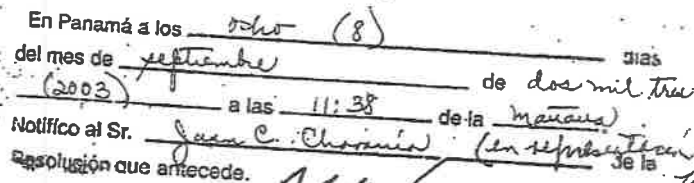 En Panamá a los ocho (8) días
del mes de septiembre de dos mil tres
(2003) a las 11:38 de la mañana
Notifíco al Sr. Juan C. (en representación de la
Resolución que antecede.